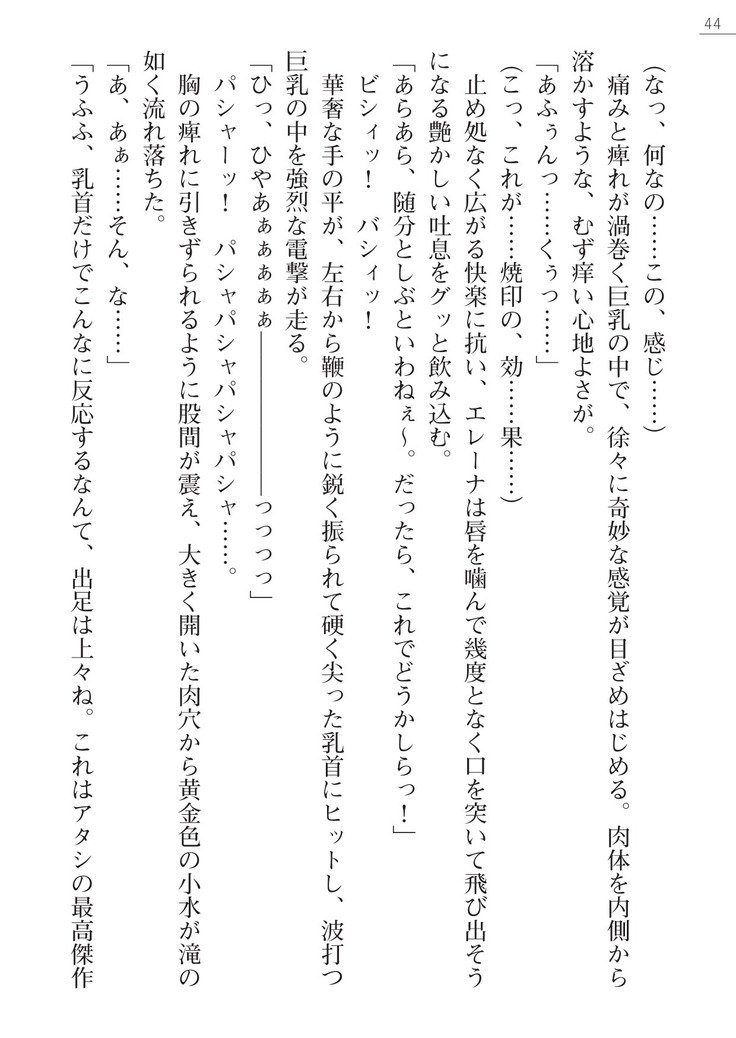 44
(なっ、何なの……この、感じ……)
痛みと痺れが渦巻く巨乳の中で、徐々に奇妙な感覚が目ざめはじめる。肉体を内側から
溶かすような、むず痒い心地よさが。
「あふぅんっ……くぅっ……」
(こっ、これが……焼印の、効……果……)
止め処なく広がる快楽に抗い、エレーナは唇を噛んで幾度となく口を突いて飛び出そう
になる艶かしい吐息をグッと飲み込む。
「あらあら、随分としぶといわねぇ～。だったら、これでどうかしらっ!」
ビシィッ! バシィッ!
華奢な手の平が、左右から鞭のように鋭く振られて硬く尖った乳首にヒットし、波打つ
巨乳の中を強烈な電撃が走る。
「ひっ、ひやあぁぁぁぁぁ――――――――っっっっ」
パシャーッ! パシャパシャパシャパシャ……。
胸の痺れに引きずられるように股間が震え、大きく開いた肉穴から黄金色の小水が滝の
如く流れ落ちた。
「あ、あぁ……そん、な……」
「うふふ、乳首だけでこんなに反応するなんて、出足は上々ね。これはアタシの最高傑作